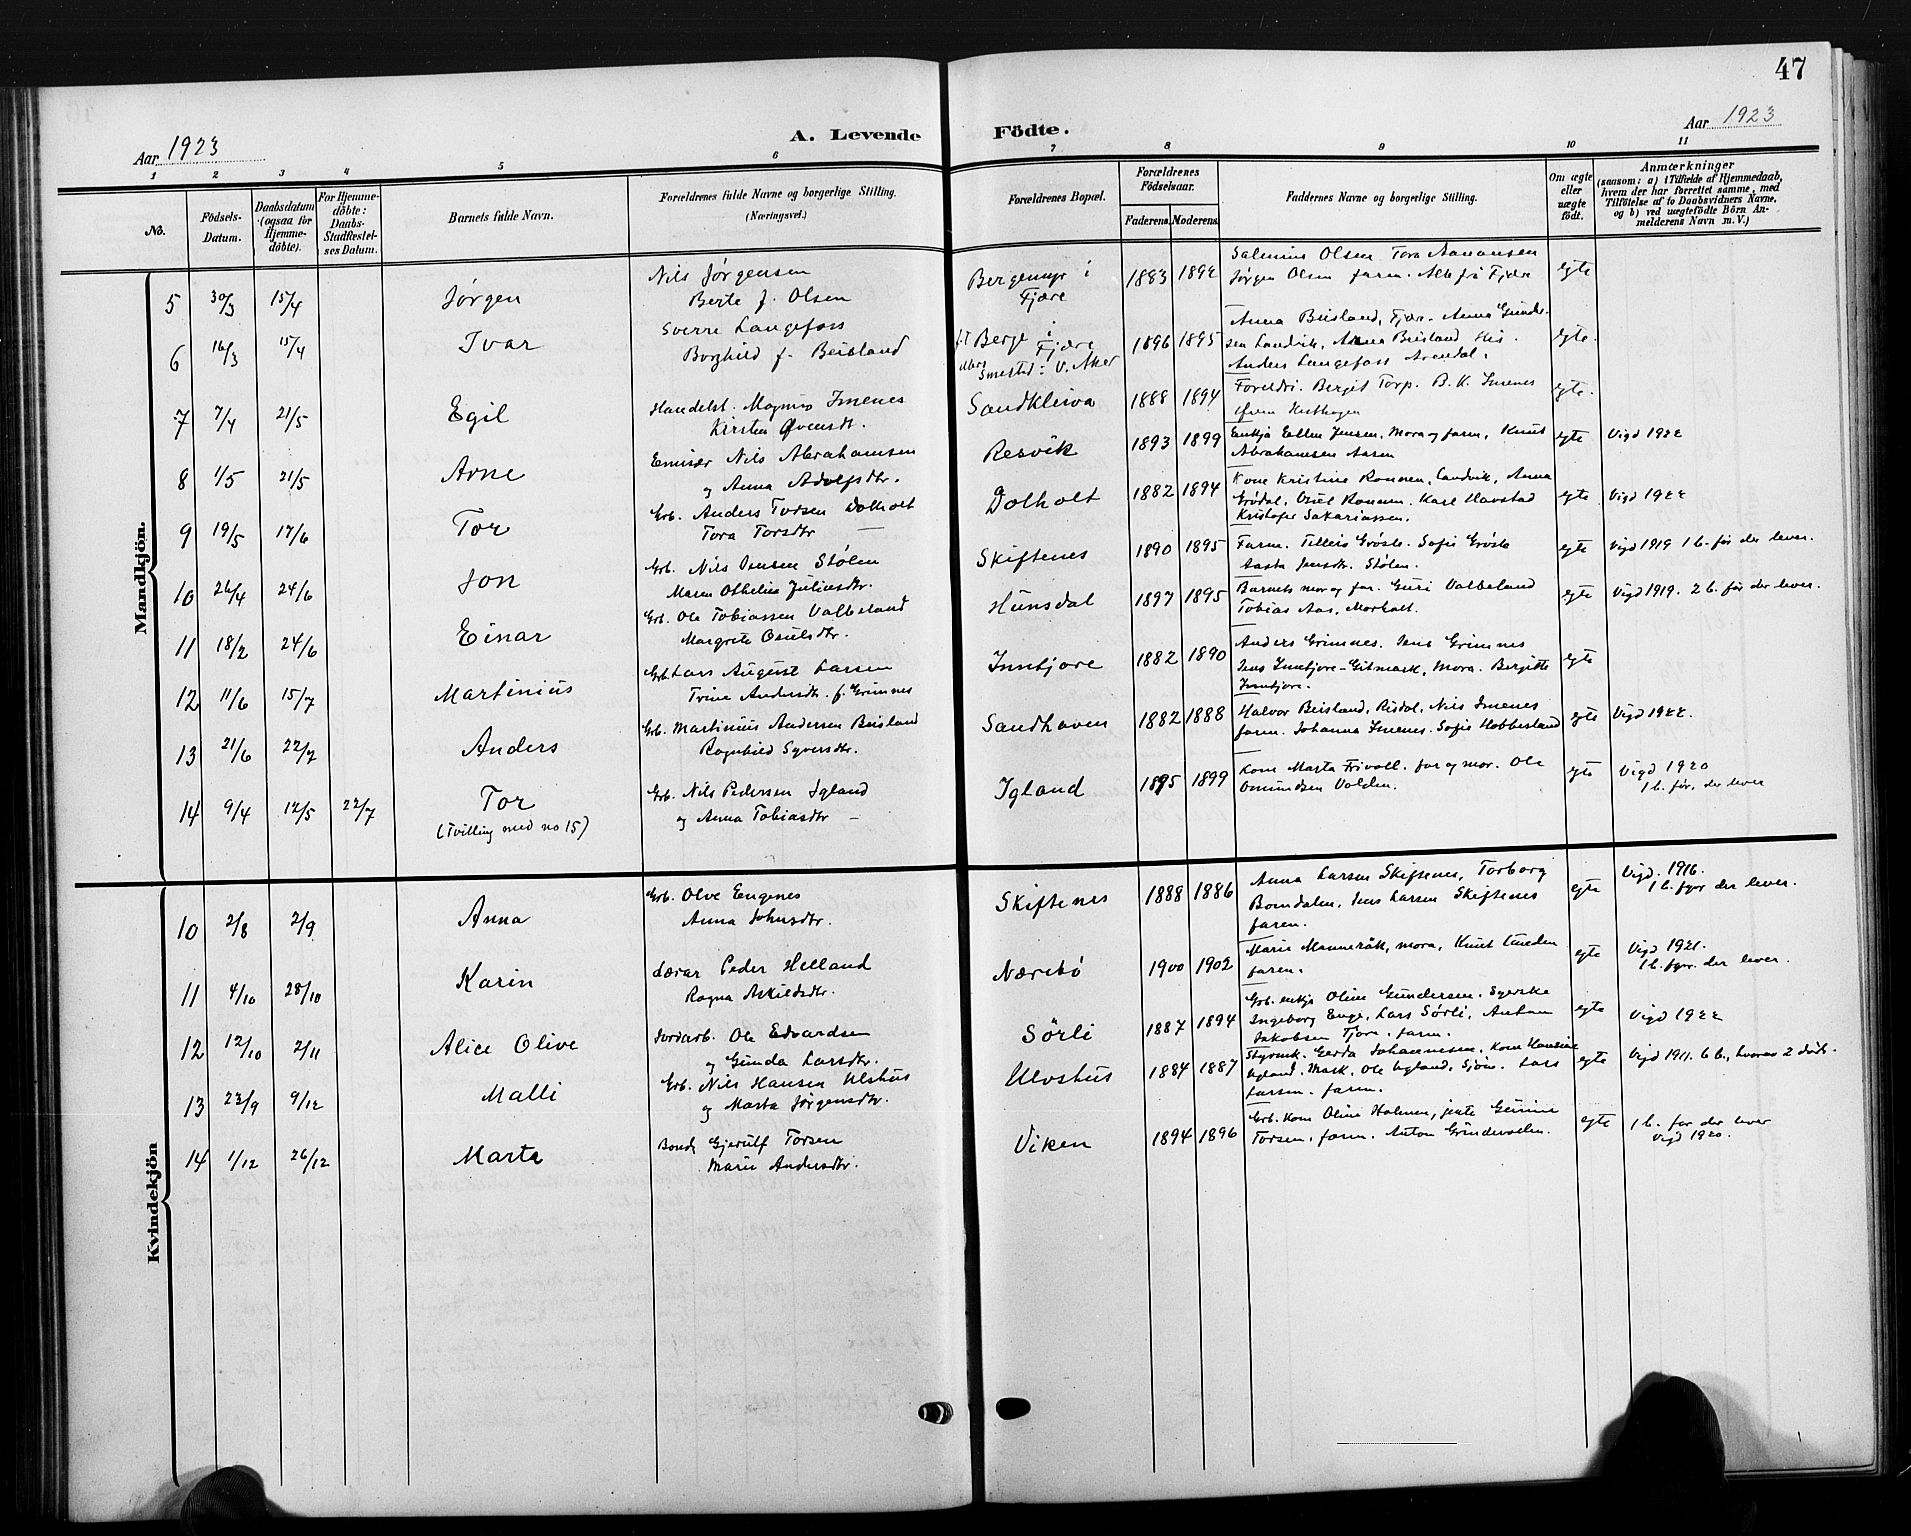 47
Aar 1923
A. Levende Födte.
Aar 1923
1 2 3 4 5 6 7 8 9 10 11
No.
Födsels-Datum.
Daabsdatum (ogsaa for Hjemmedöbte).
For Hjemmedöbte: Daabs-Stadfæstelses Datum.
Barnets fulde Navn.
Forældrenes fulde Navne og borgerlige Stilling. (Næringsvei.)
Forældrenes Bopæl.
Forældrenes Födselsaar.
Faderens. Moderens.
Faddernes Navne og borgerlige Stilling.
Om ægte eller uægte födt.
Anmærkninger
(saasom: a) i Tilfælde af Hjemmedaab, hvem der har forrettet samme, med Tilföielse af to Daabsvidners Navne, og b) ved uægtefödte Börn Anmelderens Navn m. V.)
Mandkjön.
5 30/3 15/4 Jørgen
Nils Jørgensen
Berte f. Olsen
Bergemyr i
Fjære
1883 1892
Olsen Tora Aanonsen
Jørgen Olsen farm. Alle frå Fjære
egte
6 16/3 15/4 Ivar
Sverre Langefoss
Borghild f. Beisland
Berge i
Fjære
Smestad i V. Aker
1896 1895
Anna Beisland, Fjær. Anna Gunder-
sen Landvik, Anna Beisland His.
Anders Langefoss Arendal.
egte.
7 7/4 21/5 Egil
Handelst. Magnus Imenes
Kirsten
Sandkleiva
1888 1894
Foreldri. Bergit Torp. B. K. Imenes
egte.
8 1/5 21/5 Arne
Emisær Nils Abrahamsen
og Anna Adolfsdtr.
Resvik
1893 1899
Enkja Ellen Jensen, Mora og farm, Knut
Abrahamsen Aasen
egte
Vigd 1922
9 19/5 17/6 Tor
Grb. Anders Torsen Dolholt
Tora Torsdtr
Dolholt
1882 1894
Kone Kristine Ronnen, Landvik, Anna
Grødal, Ronnen. Karl Havstad
Kristofer Sakariassen.
egte
Vigd 1922
10 26/4 24/6 Jon
Grb. Nils Jensen Stølen
Maren Othelie Juliusdtr.
Skiftenes
1890 1895
Farm. Tilleis Grøsle. Sofie Grøsle
Aasta Jensdt. Stølen.
egte
Vigd 1919 1 b. før der lever.
11 18/2 24/6 Einar
Grb. Ole Tobiassen Valbeland
Margrete Osulsdtr.
Hunsdal
1897 1895
Barnets mor og far. Guri Valbeland
Tobias Aas, Morholt.
egte
Vigd 1919. 2 b. før der lever.
12 11/6 15/7 Martinius
Grb. Lars August Larsen
Trine Andersdtr. f. Grimnes
Innbjore
1882 1890
Anders Grimnes. Jens Grimnes
Jens Innbjore-Gitmark, Mora. Bergitte
Innbjore.
egte
13 21/6 22/7 Anders
Grb. Martinius Andersen Beisland
Ragnhild Syversdtr.
Sandhaven
1882 1888
Halvor Beisland, Risdal, Nils Imenes
farm. Johanna Imenes. Sofie Hobbesland
egte
Vigd 1922.
14 9/4 12/5 22/7 Tor
(Tvilling med no 15)
Grb. Nils Pedersen Igland
og Anna Tobiasdtr
Igland
1895 1899
Kone Marta Frivoll. far og mor. Ole
Omundsen Valden.
egte
Vigd 1920
1 b. før, der lever
Kvindekjön
10 2/8 2/9 Anna
Grb. Olve Engenes
Anna Johnsdtr.
Skiftenes
1888 1886
Anna Larsen Skiftenes, Torborg
Bomdalen, Jens Larsen Skiftenes
faren.
egte
Vigd. 1916.
1 b. fyr der lever.
11 4/10 28/10 Karin
Lærar Peder Helland
Ragna Askildsdtr.
Nærebø
1900 1902
Marie Manneråk, mora, Knut
faren.
egte
Vigd 1921.
1 b. fyr. der lever.
12 12/10 2/11 Alice Olive
Jordarb. Ole Edvardsen
og Gunda Larsdtr.
Sörli
1887 1894
Grb. enkja Oline Gundersen. Syerske
Ingeborg Enge, Lars Sørli, Anton
Jakobsen Tjore, farm.
egte
Vigd 1922
13 23/9 9/12 Malli
Grb. Nils Hansen Ulshus
og Marta Jørgensdtr.
Ulvshus
1884 1887
Styrmk. Gerda Johannesen, Kone Hansine
Ugland, Mark, Ole Ugland, Sjöm. Lars
Larsen. farm.
egte
Vigd 1911. 6 b., hvorav 2 döde.
14 1/12 26/12 Marta
Bonde Gjerulf Torsen
Marie Andersdtr.
Viken
1894 1896
Grb. Kone Oline Holmen, jente Gurine
Torsen, farm. Anton
egte
1 b. før der lever
Vigd 1920.